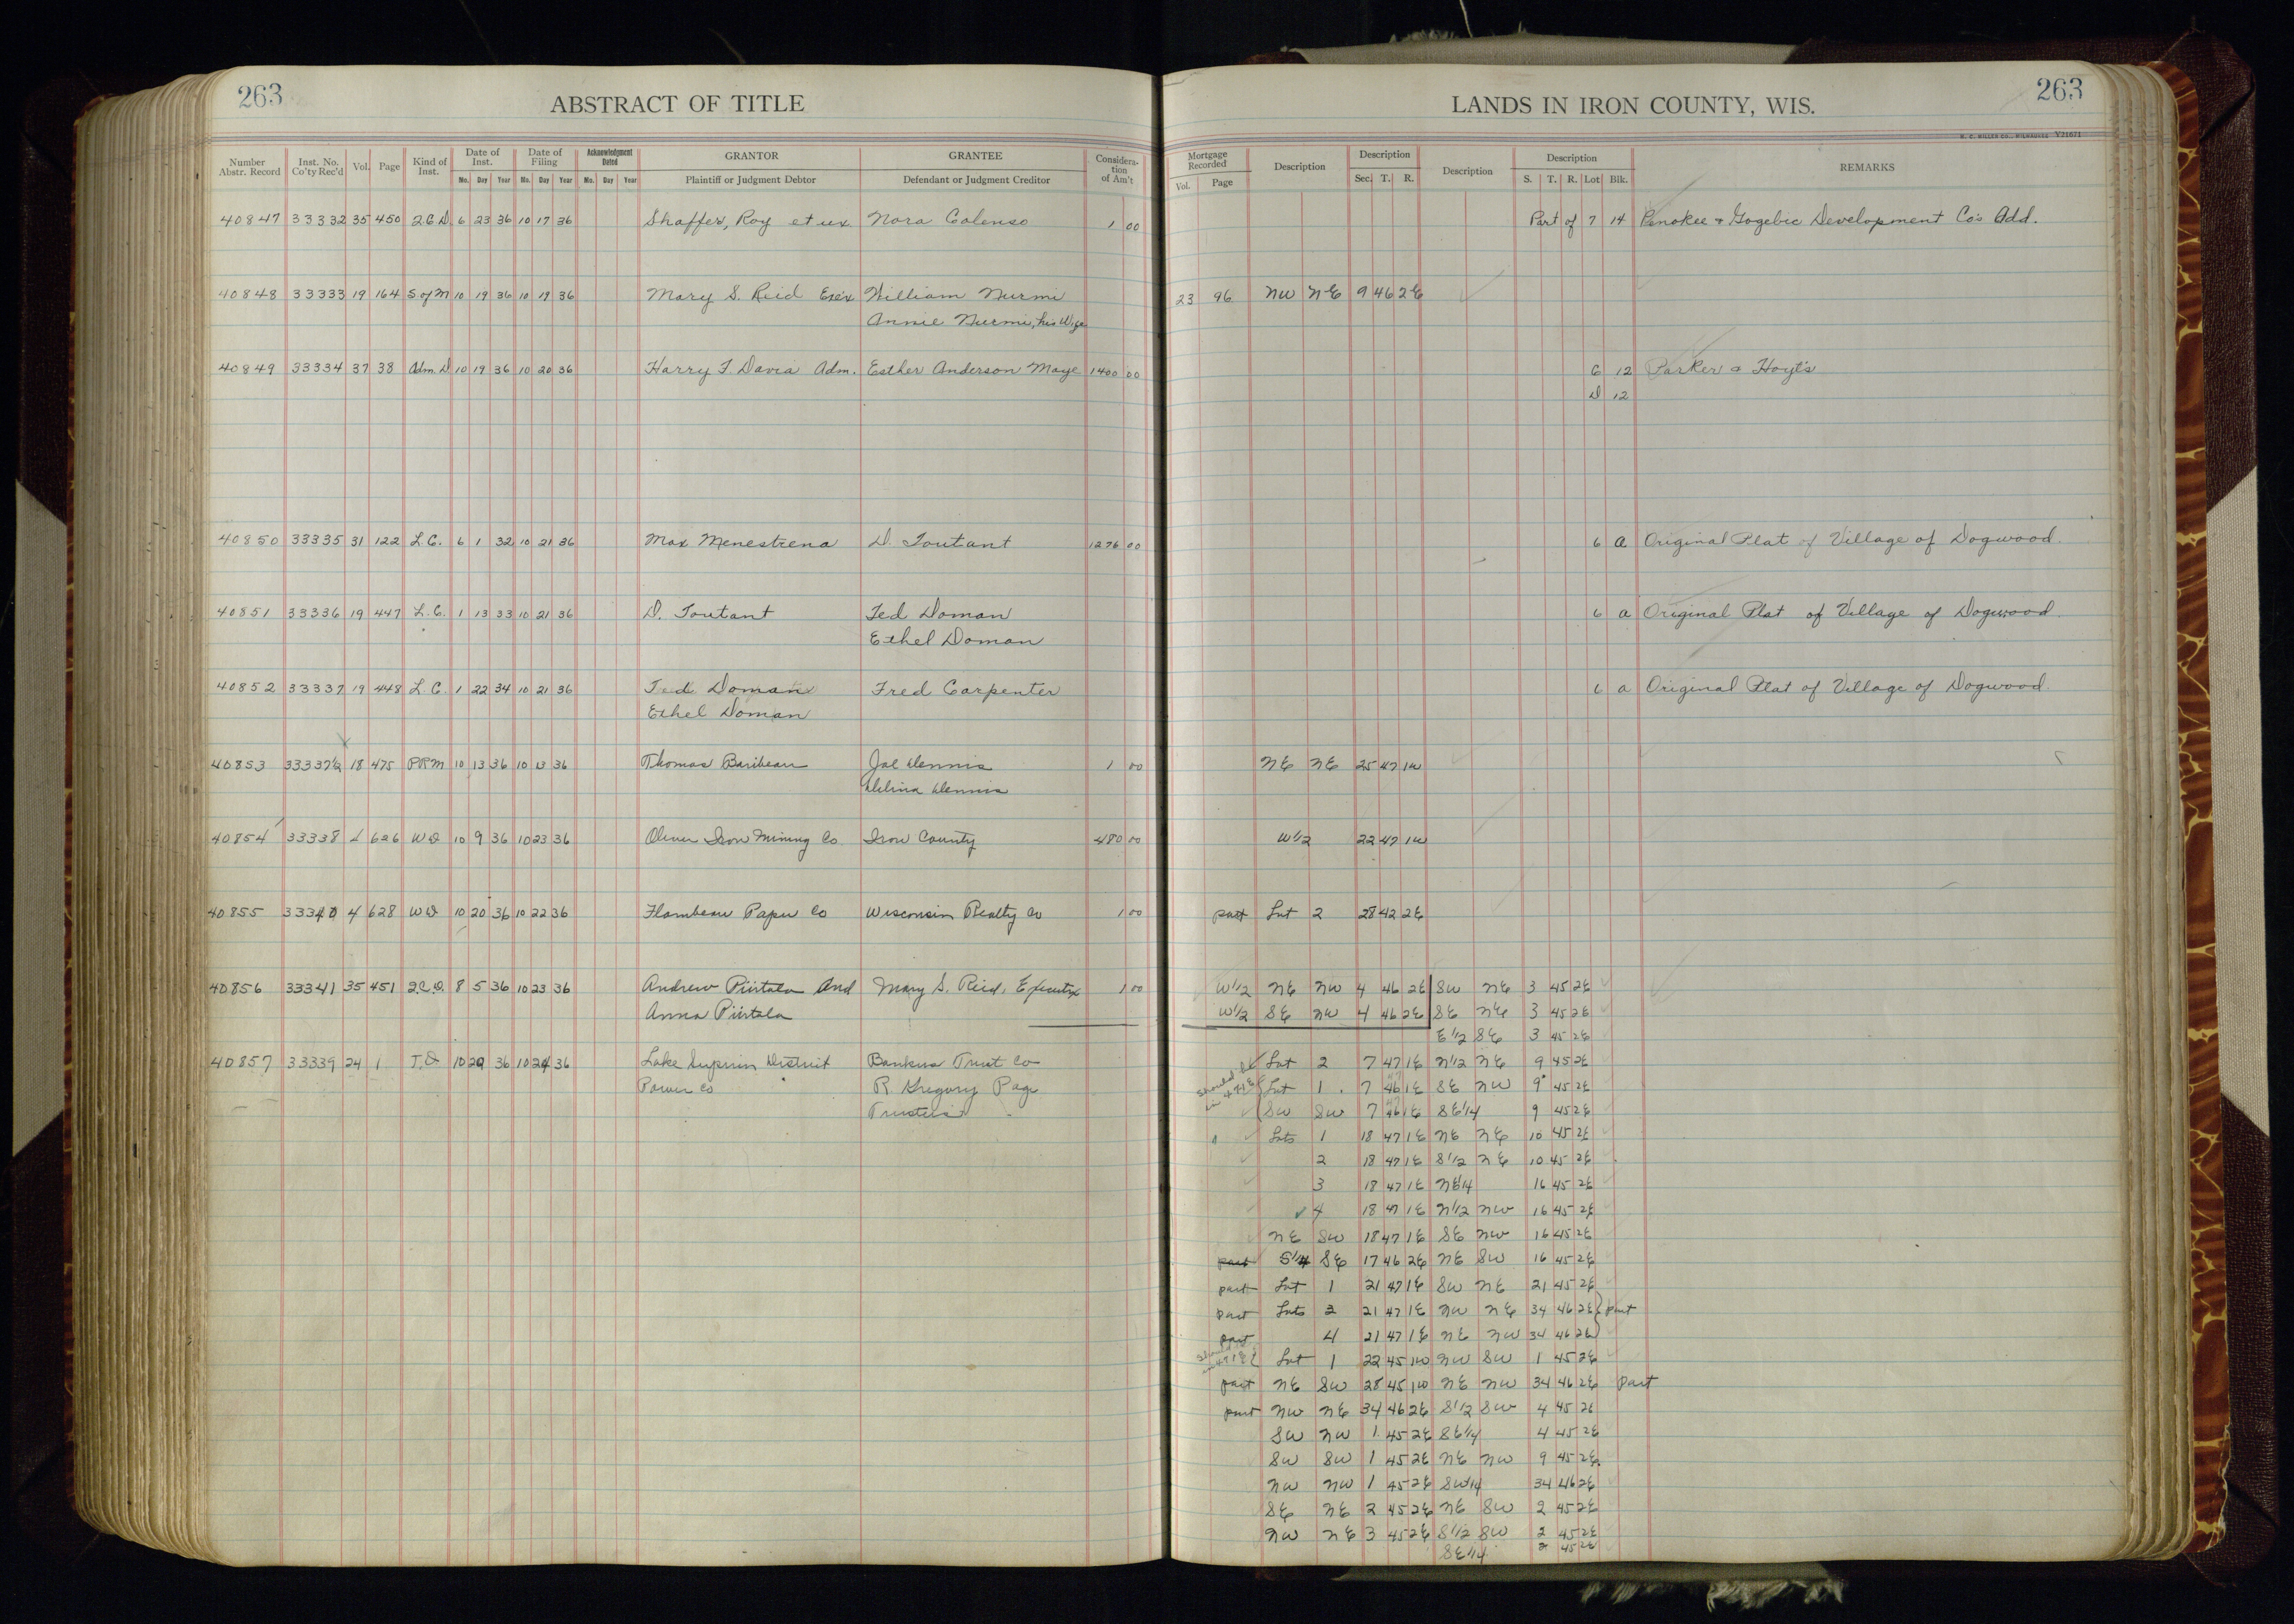 263
ABSTRACT OF TITLE
Number Abstr. Record | Inst. No. Co'ty Rec'd | Vol. | Page | Kind of Inst. | Date of Inst. Mo. Day Year | Date of Filing Mo. Day Year | Acknowledgment Dated Mo. Day Year | GRANTOR Plaintiff or Judgment Debtor | GRANTEE Defendant or Judgment Creditor | Considera-tion of Am't
40847 33332 35 450 2.C.D. 6 23 36 10 17 36 Shaffer, Roy et ux Nora Calenso 1 00
40848 33333 19 164 S. of M 10 19 36 10 19 36 Mary S. Reid Exe'x William Nurmi
Annie Nurmi, his Wife
40849 33334 37 38 Adm. D 10 19 36 10 20 36 Harry F. Davia Adm. Esther Anderson Maye 1400 00
40850 33335 31 122 L.C. 6 1 32 10 21 36 Max Menestrena D. Toutant 1276 00
40851 33336 19 447 L.C. 1 13 33 10 21 36 D. Toutant Ted Doman
Ethel Doman
40852 33337 19 448 L.C. 1 22 34 10 21 36 Ted Doman Fred Carpenter
Ethel Doman
40853 33337½ 18 475 PRM 10 13 36 10 13 36 Thomas Baribeau Joe Dennis 1 00
Delina Dennis
40854 33338 4 626 WD 10 9 36 10 23 36 Oliver Iron Mining Co Iron County 480 00
40855 33340 4 628 WD 10 20 36 10 22 36 Flambeau Paper Co Wisconsin Realty Co 1 00
40856 33341 35 451 2.C.D. 8 5 36 10 23 36 Andrew Piirtala and Mary S. Reid, Executrix 1 00
Anna Piirtala
40857 33339 24 1 T.D 10 20 36 10 24 36 Lake Superior District Bankers Trust Co
Power Co R Gregory Page
Trustees
263
LANDS IN IRON COUNTY, WIS.
H. C. MILLER CO., MILWAUKEE V21671
Mortgage Recorded Vol. Page | Description | Description Sec. T. R. | Description | Description S. T. R. Lot Blk. | REMARKS
Part of 7 14 Penokee & Gogebic Development Co's Add.
23 96 NW NE 9 46 2E
C 12 Parker & Hoyt's
D 12
6 A Original Plat of Village of Dogwood.
6 A Original Plat of Village of Dogwood.
6 A Original Plat of Village of Dogwood.
NE NE 25 47 1W
W1/2 22 47 1W
part Lot 2 28 42 2E
W1/2 NE NW 4 46 2E SW NE 3 45 2E
W1/2 SE NW 4 46 2E SE NE 3 45 2E
E1/2 SE 3 45 2E
Lot 2 7 47 1E N1/2 NE 9 45 2E
should be in 47 1E Lot 1 7 46 1E SE NW 9 45 2E
SW SW 7 46 1E SE1/4 9 45 2E
Lots 1 18 47 1E NE NE 10 45 2E
2 18 47 1E S1/2 NE 10 45 2E
3 18 47 1E NE1/4 16 45 2E
4 18 47 1E N1/2 NW 16 45 2E
NE SW 18 47 1E SE NW 16 45 2E
part S1/4 SE 17 46 2E NE SW 16 45 2E
part Lot 1 21 47 1E SW NE 21 45 2E
part Lots 2 21 47 1E NW NE 34 46 2E part
part 4 21 47 1E NE NW 34 46 2E
Lot 1 22 45 1W NW SW 1 45 2E
part NE SW 28 45 1W NE NW 34 46 2E part
part NW NE 34 46 2E S1/2 SW 4 45 2E
SW NW 1 45 2E SE1/4 4 45 2E
SW SW 1 45 2E NE NW 9 45 2E
NW NW 1 45 2E SW1/4 34 46 2E
SE NE 2 45 2E NE SW 2 45 2E
NW NE 3 45 2E S1/2 SW 2 45 2E
SE1/4 2 45 2E